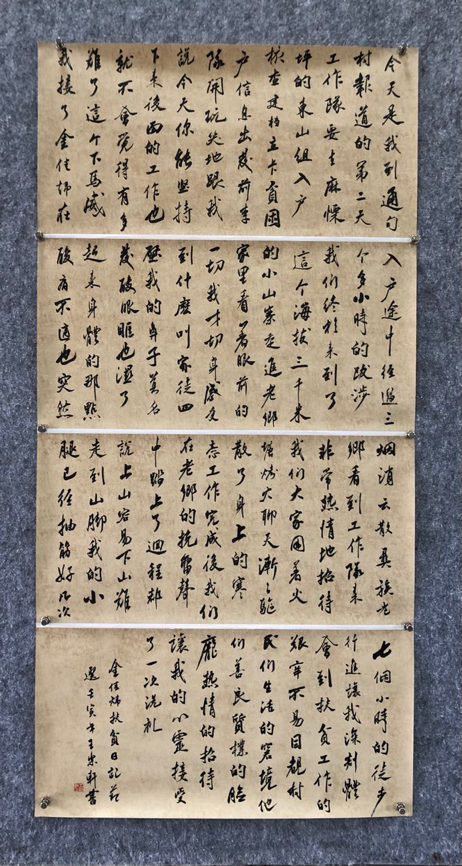 今天是我到通勾
村報道的第二天
工作隊要去麻慄
坪的東山組入户
核查建档立卡貧困
户信息出發前李
隊開玩笑地跟我
說今天你能堅持
下來後面的工作也
就不會覺得有多
難了這个下馬威
我接了金佳炜在
入户途中經過三
个多小時的跋涉
我們终於來到了
這个海拔三千米
的小山寨走進老鄉
家里看着眼前的
一切我才切身感受
到什麽叫家徒四
壁我的鼻子莫名
發酸眼眶也濕了
起來身體的那點
酸痛不適也突然
烟消云散彝族老
鄉看到工作隊来
非常熱情地招待
我們大家围着火
塘烤火聊天漸々驅
散了身上的寒
意工作完成後我们
在老鄉的挽留聲
中踏上了迴程都
說上山容易下山難
走到山脚我的小
腿已經抽筋好几次
七個小時的徒步
行進讓我深刻體
會到扶貧工作的
艱辛不易目覩村
民们生活的窘境他
们善良質樸的脸
龐热情的招待
讓我的心靈接受
了一次洗礼
金佳炜扶貧日記節
選壬寅年王宗軒書